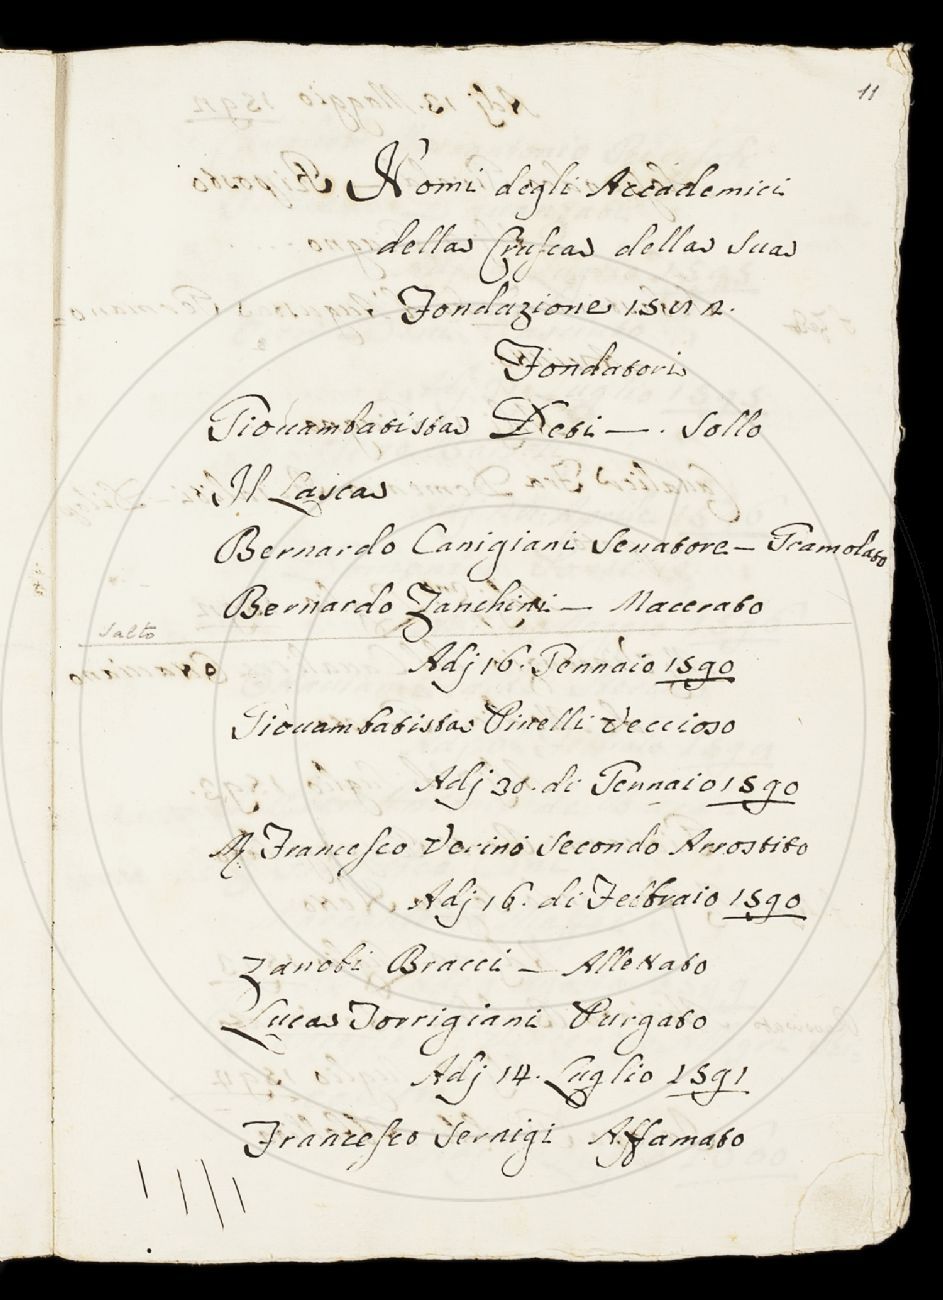 11
Nomi degli Accademici
della Crusca della sua
Fondazione 1542.
Fondatori
Giovambatista Deti — . Sollo
Il Lasca
Bernardo Canigiani Senatore — Gramolato
Bernardo Zanchini — Macerato
salto
Adj 16. Gennaio 1590
Giovambatista Pinelli Veccioso
Adj 30. di Gennaio 1590
Francesco Verino Secondo Arrostito
Adj 16. di Febbraio 1590
Zanobi Bracci — Allettato
Luca Torrigiani Purgato
Adj 14. Luglio 1591
Francesco Sernigi Affamato